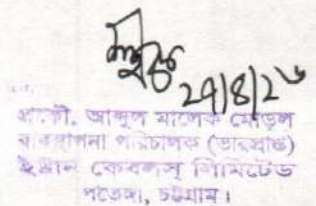 ২৭/৪/২৬
প্রকৌ. আব্দুল মালেক মোড়ল
ব্যবস্থাপনা পরিচালক (ভারপ্রাপ্ত)
ইস্টার্ন কেবলস্ লিমিটেড
পতেঙ্গা, চট্টগ্রাম।